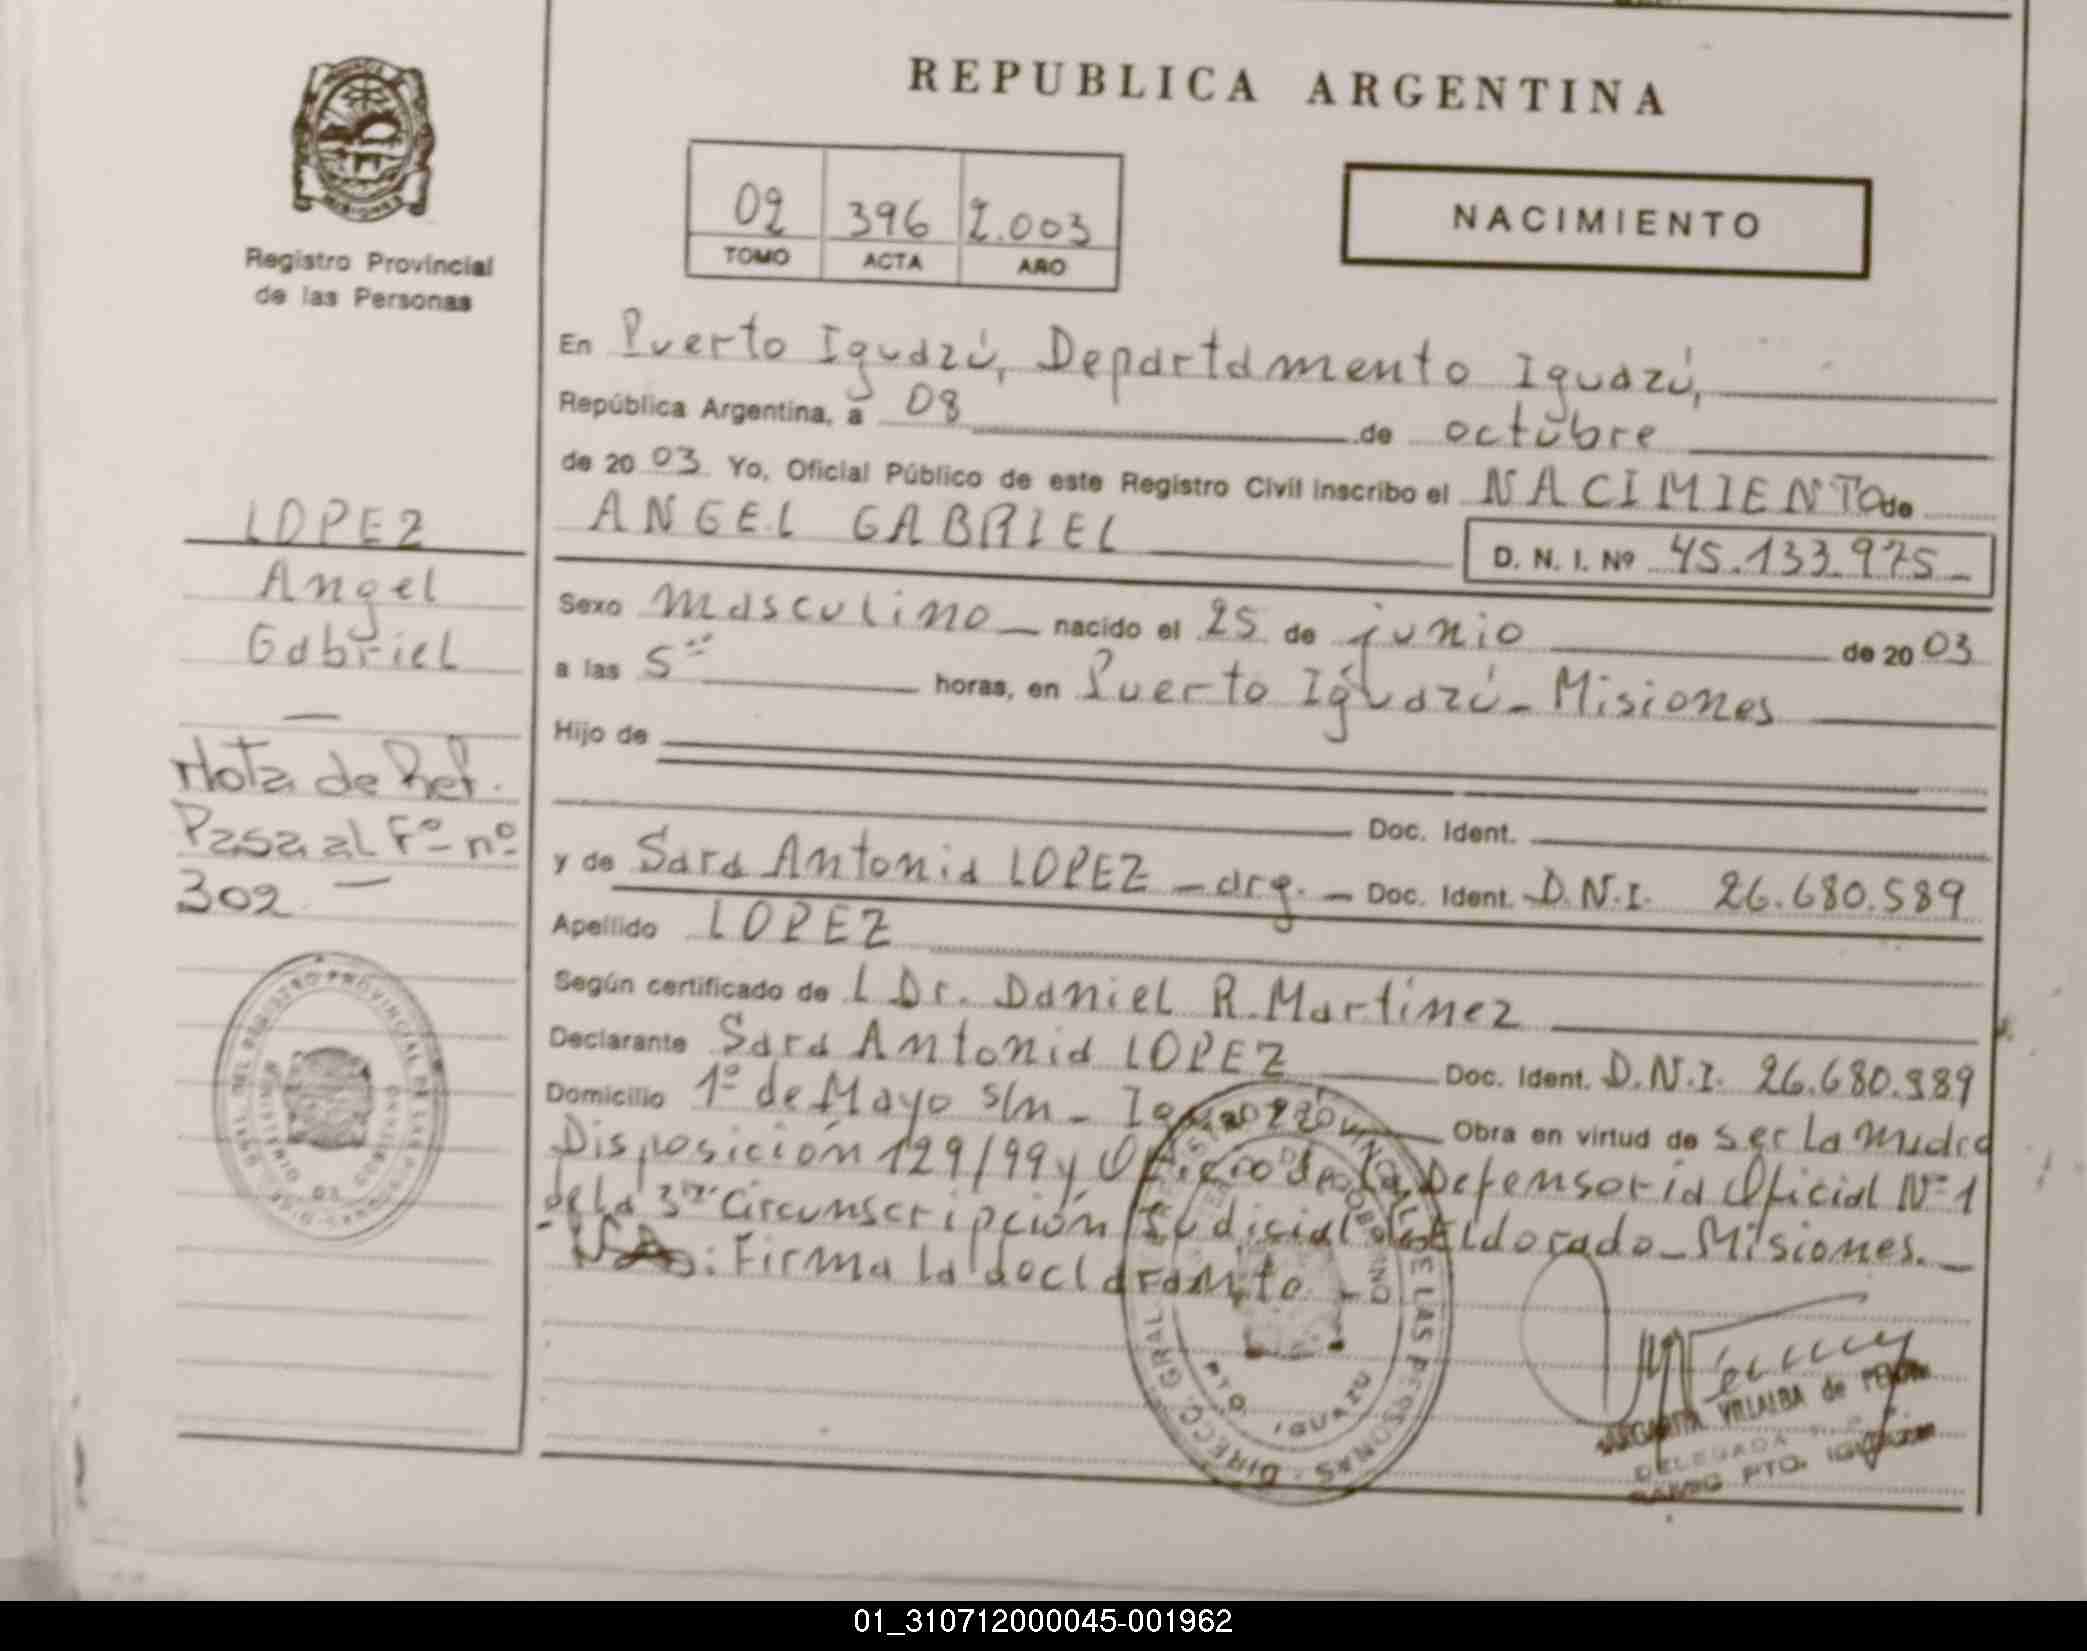 REPUBLICA ARGENTINA
02 396 2.003
TOMO ACTA AÑO
NACIMIENTO
Registro Provincial
de las Personas
LOPEZ
Angel
Gabriel
Nota de Ref.
Pasa al Fº nº
302
En Puerto Iguazú, Departamento Iguazú,
República Argentina, a 08 de octubre
de 20 03 Yo, Oficial Público de este Registro Civil inscribo el NACIMIENTO de
ANGEL GABRIEL
D. N. I. Nº 45.133.975
Sexo masculino nacido el 25 de junio de 20 03
a las 5 horas, en Puerto Iguazú - Misiones
Hijo de
Doc. Ident.
y de Sara Antonia LOPEZ - arg. - Doc. Ident. D.N.I. 26.680.589
Apellido LOPEZ
Según certificado de L Dr. Daniel R. Martinez
Declarante Sara Antonia LOPEZ Doc. Ident. D.N.I. 26.680.589
Domicilio 1º de Mayo s/n - Obra en virtud de ser la madre
Disposición 129/99 y Oficio de la Defensoria Oficial Nº 1
de la 3ra Circunscripción Judicial de Eldorado - Misiones. -
: Firma la declarante. -
DIRECC. GRAL. DE LAS PERSONAS
PTO. IGUAZU
MARGARITA VILLALBA de
DELEGADA
PTO. IGUAZU
01_310712000045-001962